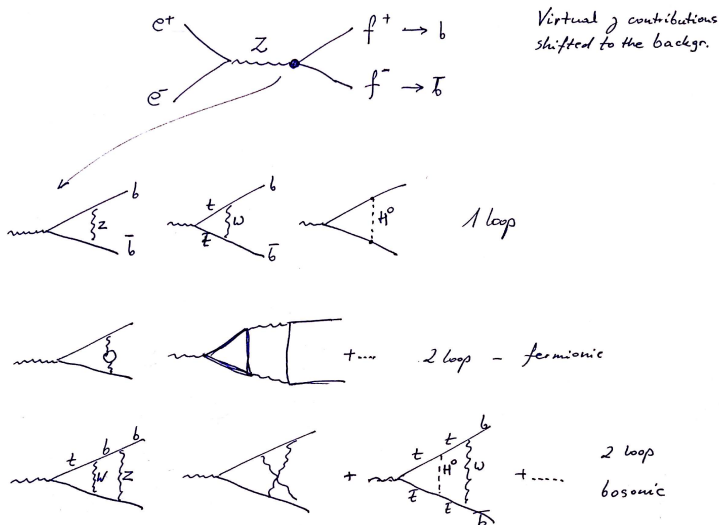 e+ Z f+ → b
e- f- → b̄
Virtual γ contributions
shifted to the backgr.
b Z b̄
t W t̄ b b̄
H⁰
1 loop
+.... 2 loop - fermionic
t b b W Z
+ t t b H⁰ W t̄ t b̄ +..... 2 loop
bosonic